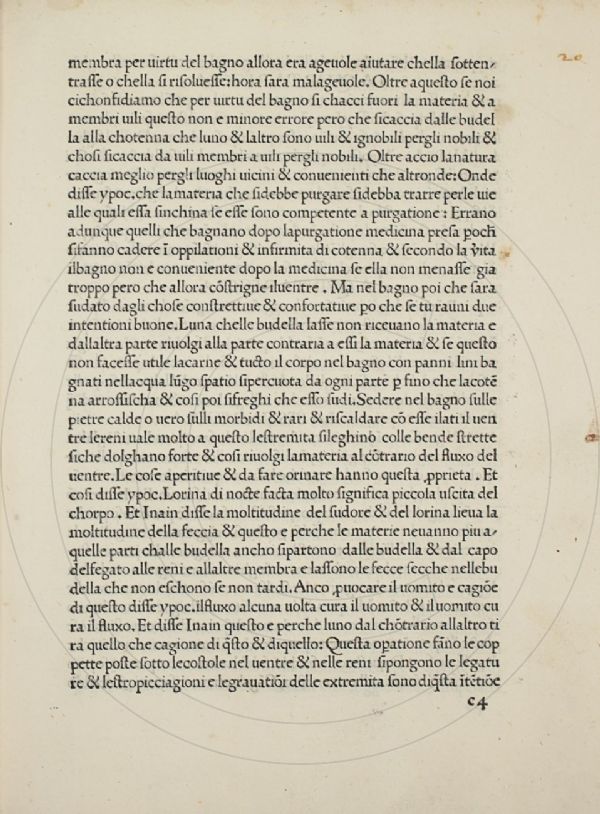 20
membra per uirtu del bagno allora era ageuole aiutare chella sotten-
trasse o chella si risoluesse:hora sara malageuole. Oltre aquesto se noi
cichonfidiamo che per uirtu del bagno si chacci fuori la materia & a
membri uili questo non e minore errore pero che sicaccia dalle budel
la alla chotenna che luno & laltro sono uili & ignobili pergli nobili &
chosi sicaccia da uili membri a uili pergli nobili. Oltre accio lanatura
caccia meglio pergli luoghi uicini & conuenienti che altronde:Onde
disse ypoc.che lamateria che sidebbe purgare sidebba trarre perle uie
alle quali essa sinchina se esse sono competente a purgatione : Errano
adunque quelli che bagnano dopo lapurgatione medicina presa poch̄
sifanno cadere ī oppilationi & infirmita di cotenna & secondo la v̄ita
ilbagno non e conueniente dopo la medicina se ella non menasse gia
troppo pero che allora cōstrigne iluentre . Ma nel bagno poi che sara
sudato dagli chose constrettiue & confortatiue po che se tu rauni due
intentioni buone.Luna chelle budella lasse non riceuano la materia e
dallaltra parte riuolgi alla parte contraria a essi la materia & se questo
non facesse utile lacarne & tucto il corpo nel bagno con panni lini ba
gnati nellacqua lūgo spatio sipercuota da ogni parte p fino che lacotē
na arrossischa & cosi poi sifreghi che esso sudi.Sedere nel bagno sulle
pietre calde o uero sulli morbidi & rari & riscaldare cō esse ilati il uen
tre lereni uale molto a questo lestremita sileghino colle bende strette
siche dolghano forte & cosi riuolgi lamateria al cōtrario del fluxo del
uentre.Le cose aperitiue & da fare orinare hanno questa ꝓprieta . Et
cosi disse ypoc.Lorina di nocte facta molto significa piccola uscita del
chorpo . Et Inain disse la moltitudine del sudore & del lorina lieua la
moltitudine della feccia & questo e perche le materie neuanno piu a-
quelle parti challe budella ancho sipartono dalle budella & dal capo
delfegato alle reni e allaltre membra e lassono le fecce secche nellebu
della che non eschono se non tardi. Anco ꝓuocare il uomito e cagiōe
di questo disse ypoc.ilfluxo alcuna uolta cura il uomito & il uomito cu
ra il fluxo. Et disse Inain questo e perche luno dal chōtrario allaltro ti
ra quello che cagione di q̄sto & diquello: Questa opatione fāno le cop
pette poste sotto lecostole nel uentre & nelle reni sipongono le legatu
re & lestropicciagioni e legrauatiōi delle extremita sono diq̄sta ītētiōe
c4